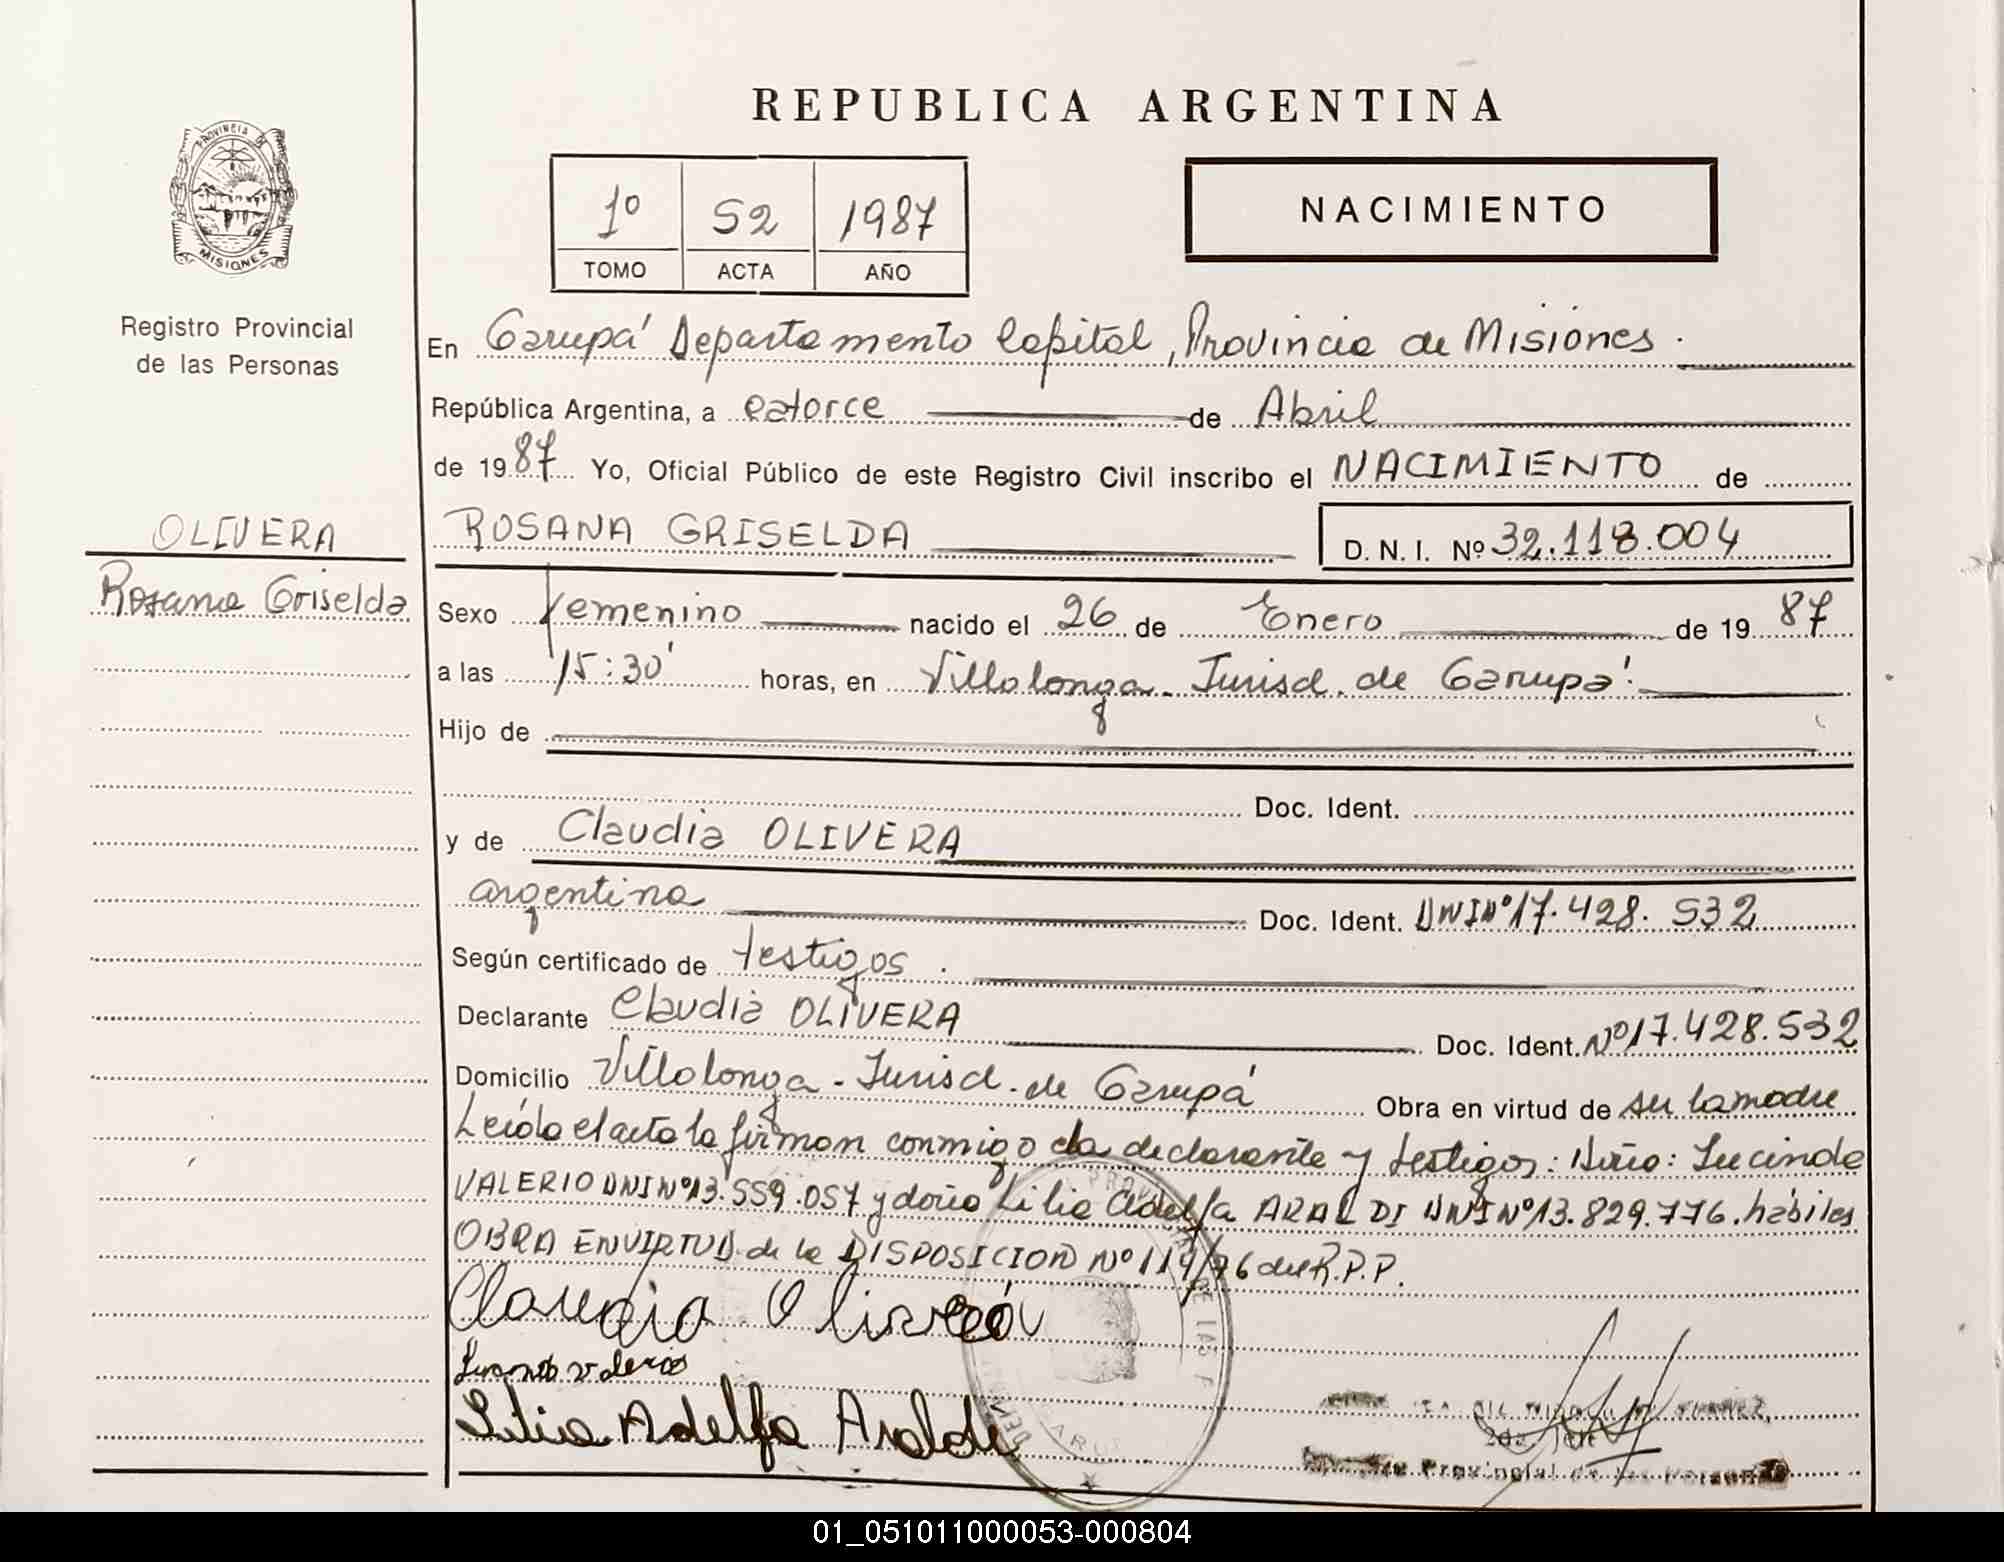 REPUBLICA ARGENTINA
PROVINCIA DE
MISIONES
Registro Provincial
de las Personas
1º S2 1987
TOMO ACTA AÑO
NACIMIENTO
En Garupá Departamento Capital, Provincia de Misiones.
República Argentina, a catorce de Abril
de 1987 Yo, Oficial Público de este Registro Civil inscribo el NACIMIENTO de
OLIVERA
Rosana Griselda
ROSANA GRISELDA D. N. I. Nº 32.118.004
Sexo femenino nacido el 26 de Enero de 1987
a las 15:30' horas, en Villalonga - Jurisd. de Garupá.
Hijo de
Doc. Ident.
y de Claudia OLIVERA
argentina Doc. Ident. DNI Nº 17.428.532
Según certificado de testigos.
Declarante Claudia OLIVERA Doc. Ident. Nº 17.428.532
Domicilio Villalonga - Jurisd. de Garupá Obra en virtud de ser la madre
Leída el acta la firman conmigo la declarante y testigos: Lucinda
VALERIO DNI Nº 13.559.057 y doña Lilia Adelfa ARALDI DNI Nº 13.829.776. hábiles
OBRA EN VIRTUD de la DISPOSICION Nº 114/76 del R.P.P.
Claudia Olivera
Valerio
Lilia Adelfa Araldi
Provincial de las Personas
01_051011000053-000804